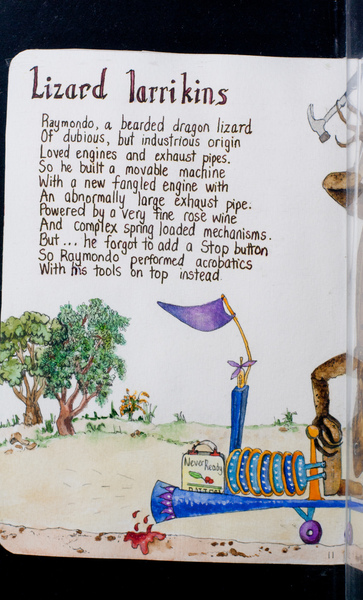 Lizard larrikins
Raymondo, a bearded dragon lizard
Of dubious, but industrious origin
Loved engines and exhaust pipes.
So he built a movable machine
With a new fangled engine with
An abnormally large exhaust pipe.
Powered by a very fine rose wine
And complex spring loaded mechanisms.
But... he forgot to add a Stop button
So Raymondo performed acrobatics
With his tools on top instead.
Never Ready
11